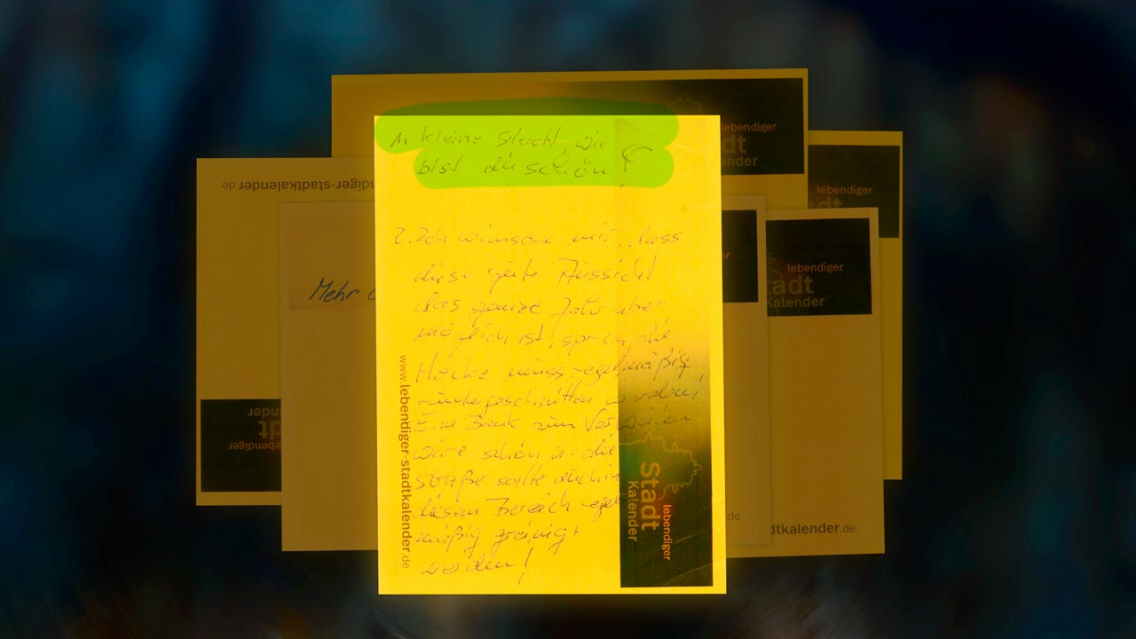 1. kleine Stadt wie
bist du schön!
2. Ich wünsche mir, dass
diese gute Aussicht
das ganze Jahr über
möglich ist, sprich die
Hecke muss regelmäßig
runtergeschnitten werden!
Eine Bank zum Verweilen
wäre schön u. die
Straße sollte auch in
diesem Bereich regel
mäßig gereinigt
werden!
www.lebendiger-stadtkalender.de
lebendiger
Stadt
Kalender
Mehr
lebendiger
dt
ender
lebendiger
lebendiger
adt
Kalender
diger-stadtkalender.de
ebendiger
dt
nder
dtkalender.de
de